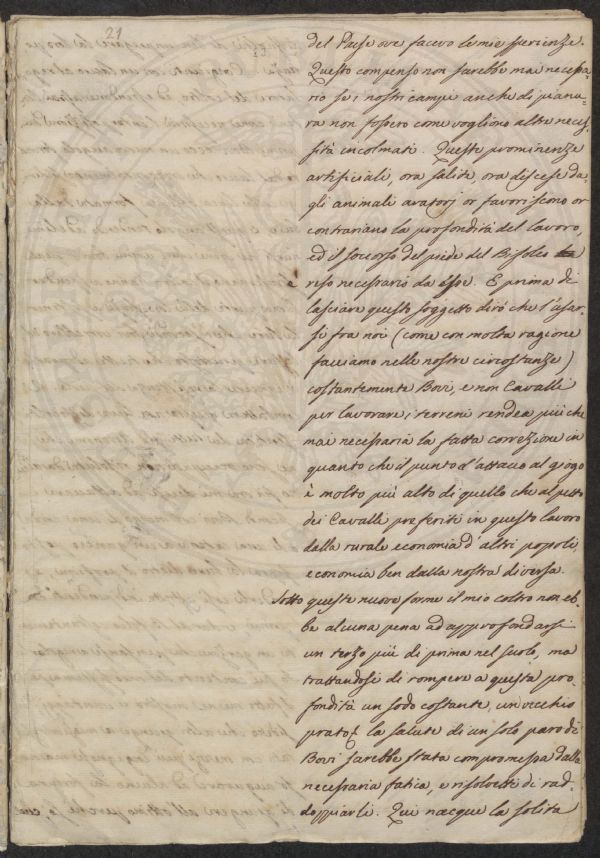 21
del Paese ove facevo le mie sperienze.
Questo compenso non sarebbe mai necessa-
rio se i nostri campi anche di pianu-
ra non fossero come vogliono altre neces-
sità incolmati. Queste prominenze
artificiali, ora salite ora discese da-
gli animali aratorj or favoriscono or
contrariano la profondità del lavoro,
ed il soccorso del piede del Bifolco
reso necessario da esse. E prima di
lasciare questo soggetto dirò che l'usar-
si fra noi (come con molta ragione
facciamo nelle nostre circostanze)
costantemente Bovi, e non Cavalli
per lavorare i terreni rendea più che
mai necessaria la fatta correzione in
quanto che il punto d'attacco al giogo
è molto più alto di quello che al petto
dei Cavalli preferiti in questo lavoro
dalla rurale economia d'altri popoli
economia ben dalla nostra diversa.
Sotto queste nuove forme il mio coltro non eb-
be alcuna pena ad approfondarsi
un terzo più di prima nel suolo, ma
trattandosi di rompere a questa pro-
fondità un sodo costante, un vecchio
prato la salute di un solo paro di
Bovi sarebbe stata compromessa dalla
necessaria fatica, e risolvetti di rad-
doppiarli. Qui nacque la solita